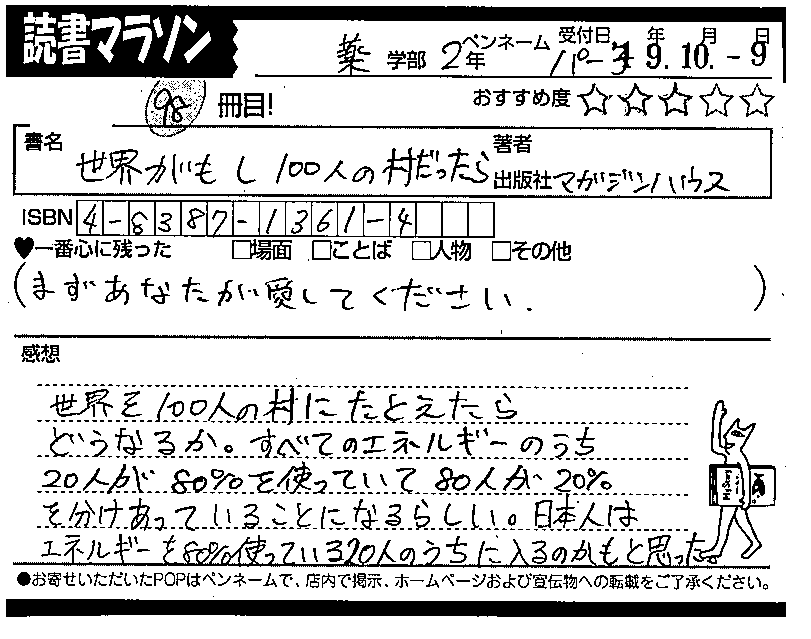 読書マラソン
薬 学部 2年 ペンネーム パーチ 受付日 年 月 日 19.10.-9
98 冊目! おすすめ度 ☆☆☆☆☆
書名 世界がもし100人の村だったら 著者
出版社 マガジンハウス
ISBN 4-8387-1361-4
♥一番心に残った □場面 □ことば □人物 □その他
(まずあなたが愛してください.)
感想
世界を100人の村にたとえたら
どうなるか。すべてのエネルギーのうち
20人が80%を使っていて80人が20%
を分けあっていることになるらしい。日本人は
エネルギーを80%使っている20人のうちに入るのかもと思った。
●お寄せいただいたPOPはペンネームで、店内で掲示、ホームページおよび宣伝物への転載をご了承ください。